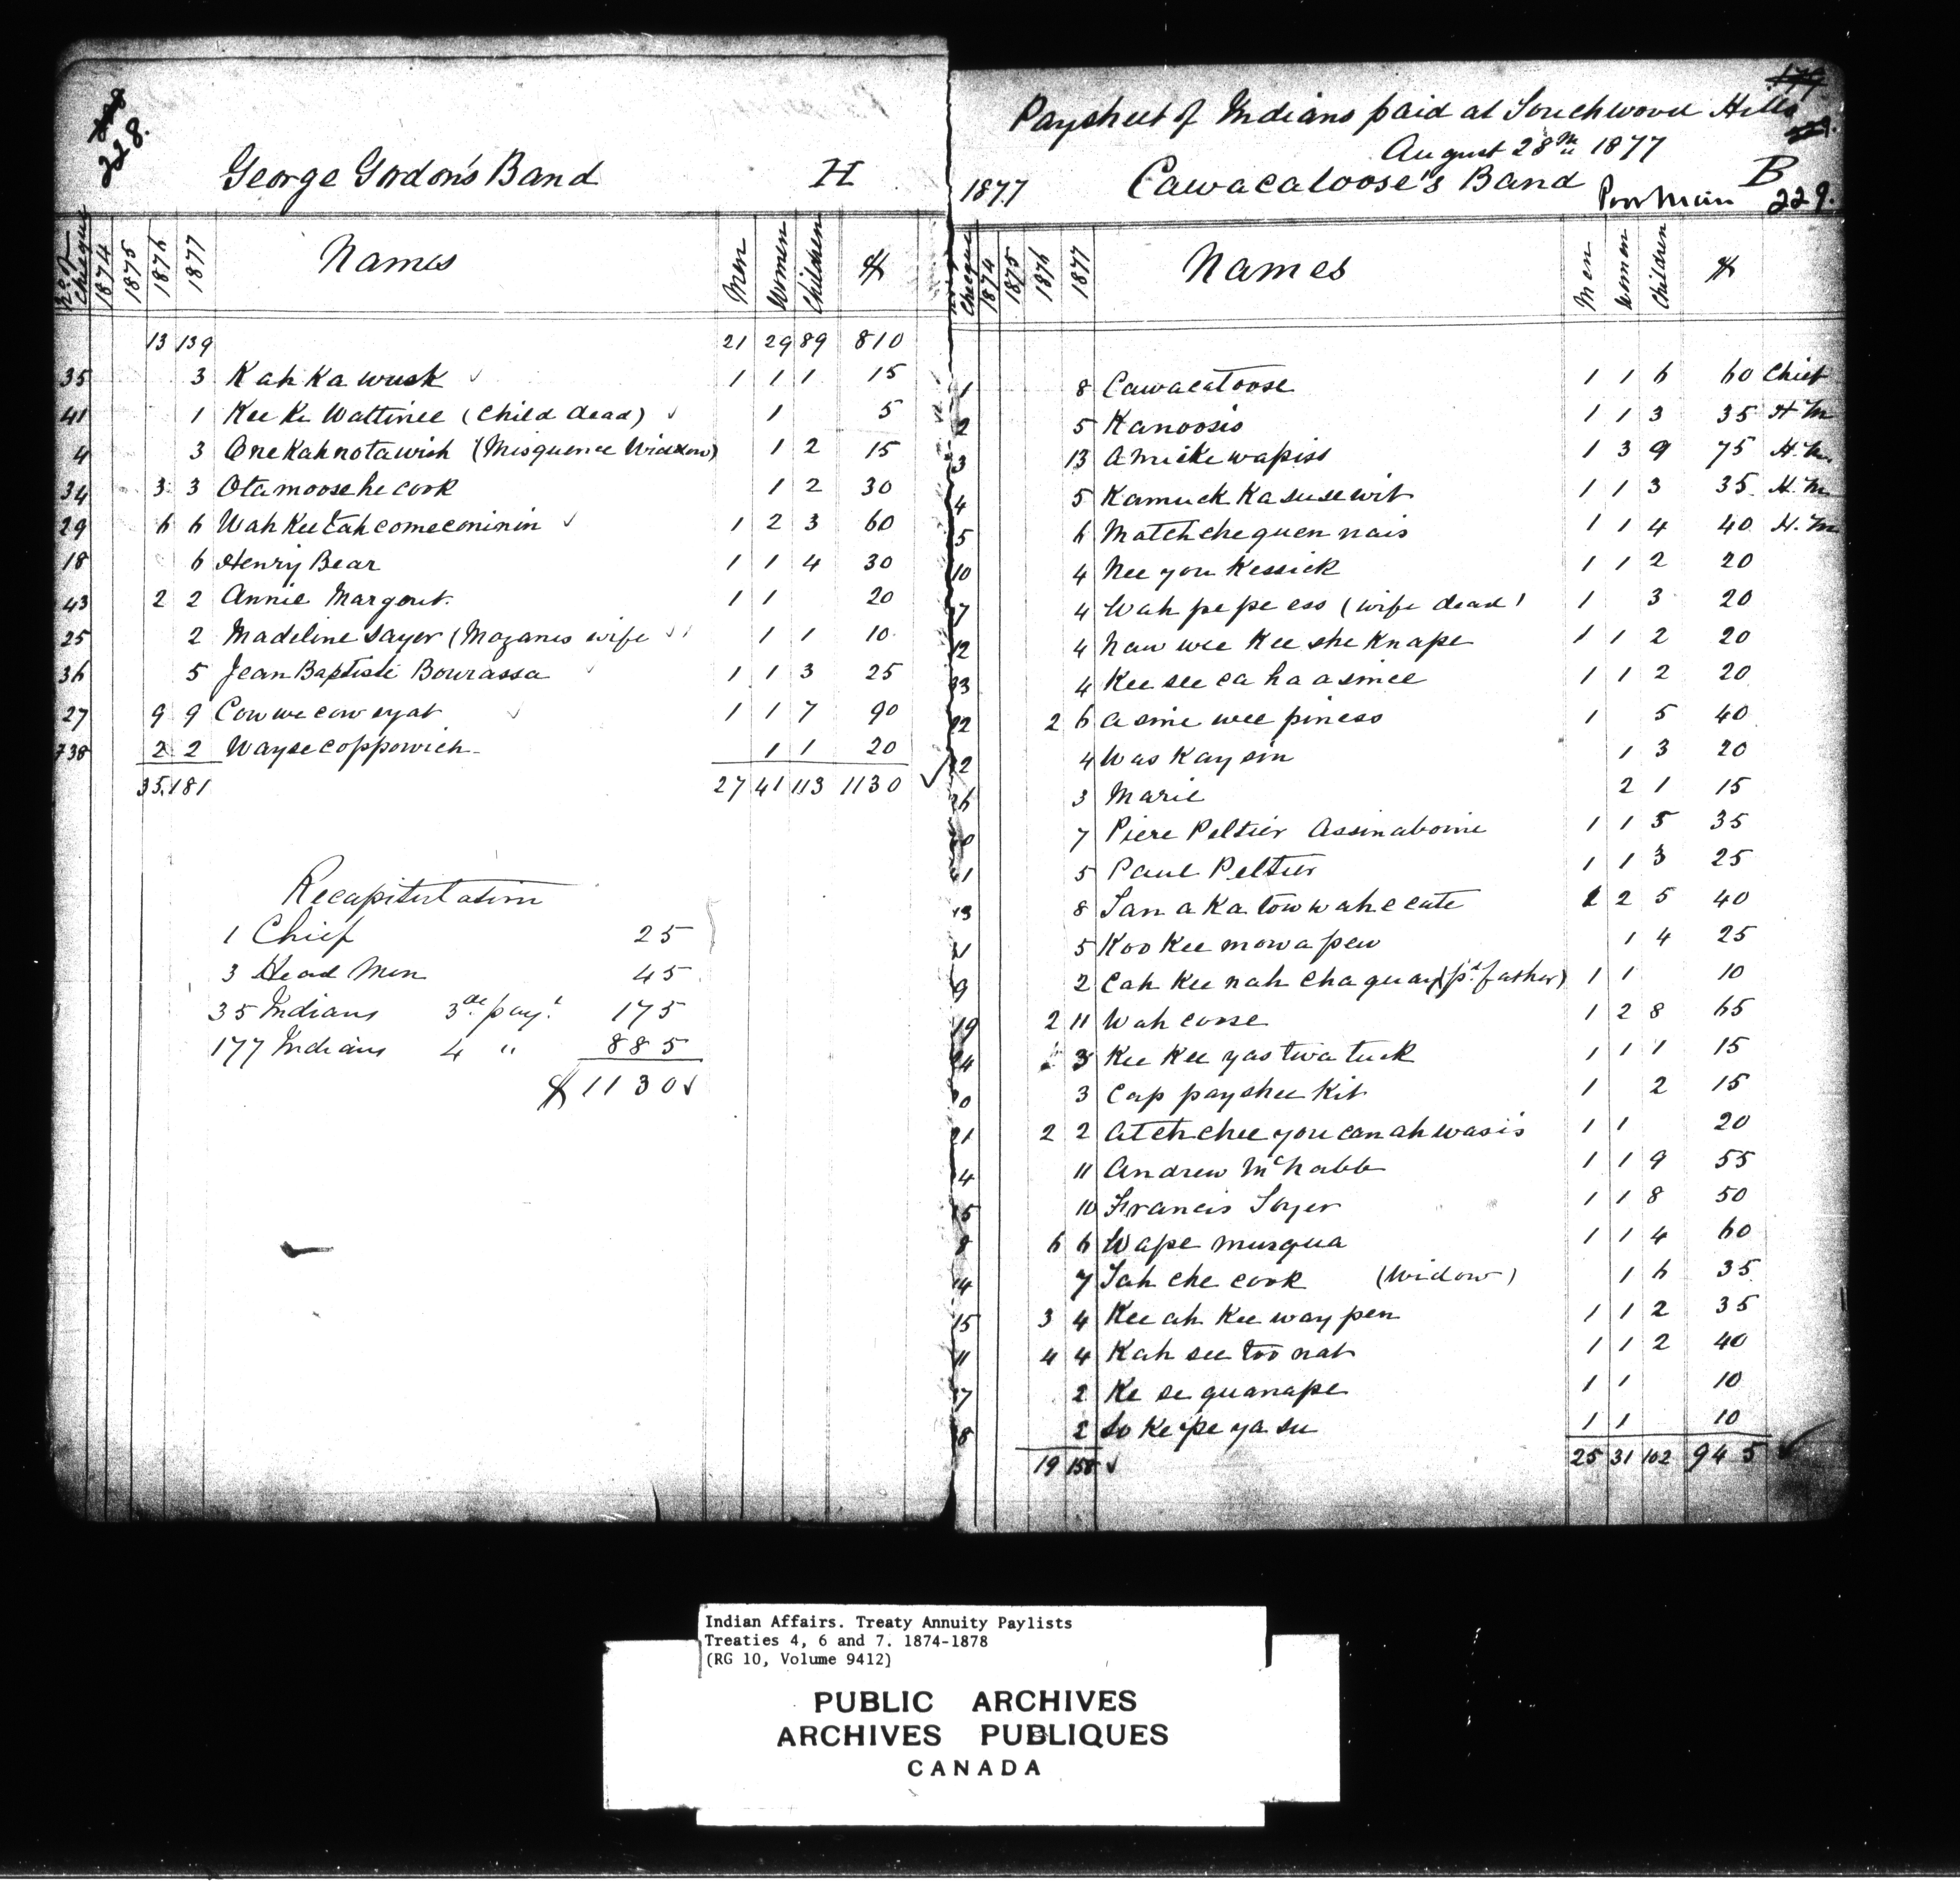 228.
George Gordon's Band H
No of Cheque 1874 1875 1876 1877 Names Men Women Children $
13 139 21 29 89 810
35 3 Kah Ka wusk ✓ 1 1 1 15
41 1 Kee Ke Wattinee (Child dead) ✓ 1 5
4 3 OneKahnotawish (Misquence Widdow) 1 2 15
34 3 3 Otamoosehe cook 1 2 30
29 6 6 Wah Kee tah comeconinin ✓ 1 2 3 60
18 6 Henry Bear 1 1 4 30
43 2 2 Annie Margout. 1 1 20
25 2 Madeline Sayer (Mozanis wife ✓ 1 1 10
36 5 Jean Baptiste Bourassa ✓ 1 1 3 25
27 9 9 Cow we cow eyat ✓ 1 1 7 90
738 2 2 Waysecoppowich 1 1 20
35 181 27 41 113 1130 ✓
Recapitulation
1 Chief 25
3 Head Men 45
35 Indians 3de payt 175
177 Indians 4 " 885
$1130 ✓
179
Paysheet of Indians paid at Touchwood Hills
August 28th 1877
1877 Cawacatoose's Band Poor Man B
229.
Cheque 1874 1875 1876 1877 Names Men Women Children $
1 8 Cawacatoose 1 1 6 60 Chief
2 5 Kanoosis 1 1 3 35 H M
3 13 Amiskewapiss 1 3 9 75 H.M.
4 5 Kamuck Kasusewit 1 1 3 35 H.M
5 6 Matchchequen nais 1 1 4 40 H.M
10 4 Nee you Kessick 1 1 2 20
7 4 Wah pe pe ess (wife dead) 1 3 20
12 4 Naw wee Kee she Knape 1 1 2 20
33 4 Kee see ca ha a sinee 1 1 2 20
22 2 6 a sine wee piness 1 5 40
2 4 Was Kay sin 1 3 20
26 3 Marie 2 1 15
7 Piere Peltier Assinaboine 1 1 5 35
5 Paul Peltier 1 1 3 25
13 8 Tan a Ka tow wah e cate 1 2 5 40
5 Koo Kee mow a pew 1 4 25
9 2 Cah Kee nah cha quay (pd father) 1 1 10
19 2 11 Wah coose 1 2 8 65
24 3 Kee Kee yas twa tuck 1 1 1 15
3 Cap payshee Kit 1 2 15
21 2 2 Atchchee you can ah wasis 1 1 20
4 11 Andrew McNabb 1 1 9 55
15 10 Francis Soyer 1 1 8 50
8 6 6 Wape musqua 1 1 4 60
14 7 Tah che cook (Widow) 1 6 35
15 3 4 Kee ah Kee way pen 1 1 2 35
11 4 4 Kah see too nat 1 1 2 40
17 2 Ke se quanape 1 1 10
18 2 So Ke pe ya su 1 1 10
19 158 ✓ 25 31 102 945 ✓
Indian Affairs. Treaty Annuity Paylists
Treaties 4, 6 and 7. 1874-1878
(RG 10, Volume 9412)
PUBLIC ARCHIVES
ARCHIVES PUBLIQUES
CANADA